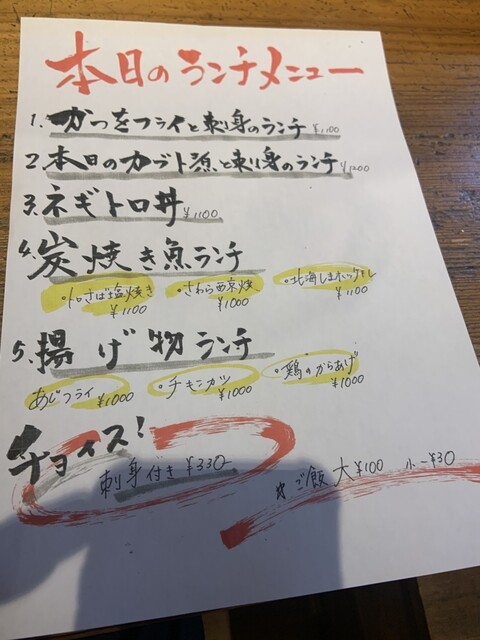 本日のランチメニュー
1. かつをフライと刺身のランチ ¥1100
2. 本日のカブト煮と刺身のランチ ¥1200
3. ネギトロ丼 ¥1100
4. 炭焼き魚ランチ
・トロさば塩焼き ・さわら西京焼 ・北海しまホッケ
¥1100 ¥1000 ¥1100
5. 揚げ物ランチ
あじフライ ・チキンカツ ・鶏のからあげ
¥1000 ¥1000 ¥1000
チョイス!
刺身付き ¥330-
ご飯 大 ¥100 小 -¥30